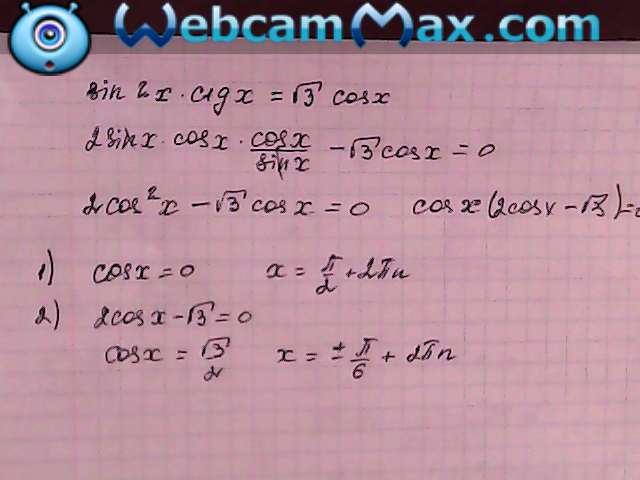 WebcamMax.com
sin 2x · ctg x = √3 cosx
2sinx · cosx · cosx/sinx − √3 cosx = 0
2cos²x − √3 cosx = 0 cosx(2cosx − √3)=0
1) cosx = 0 x = π/2 + 2πn
2) 2cosx − √3 = 0
cosx = √3/2 x = ± π/6 + 2πn